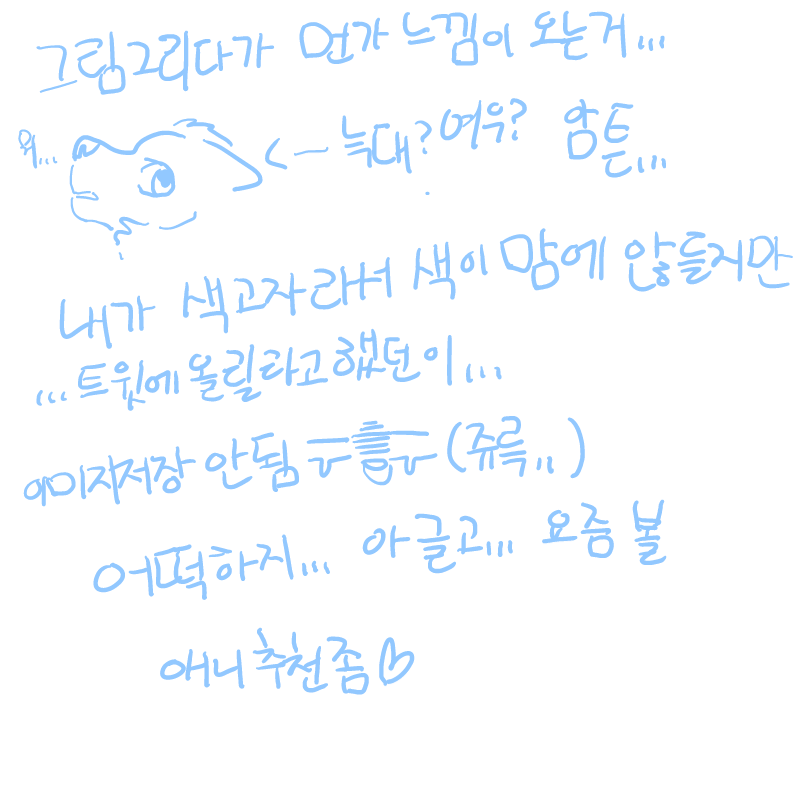 그림그리다가 먼가 느낌이 오는거...
뭐... <- 늑대? 여우? 암튼...
내가 색고자라서 색이 맘에 않들지만
...트윗에 올릴라고 했던이...
이미지저장 안됨 ㅜ흠ㅜ (쥬륵..)
어떡하지... 아 글고... 요즘 볼
애니 추천 좀♡